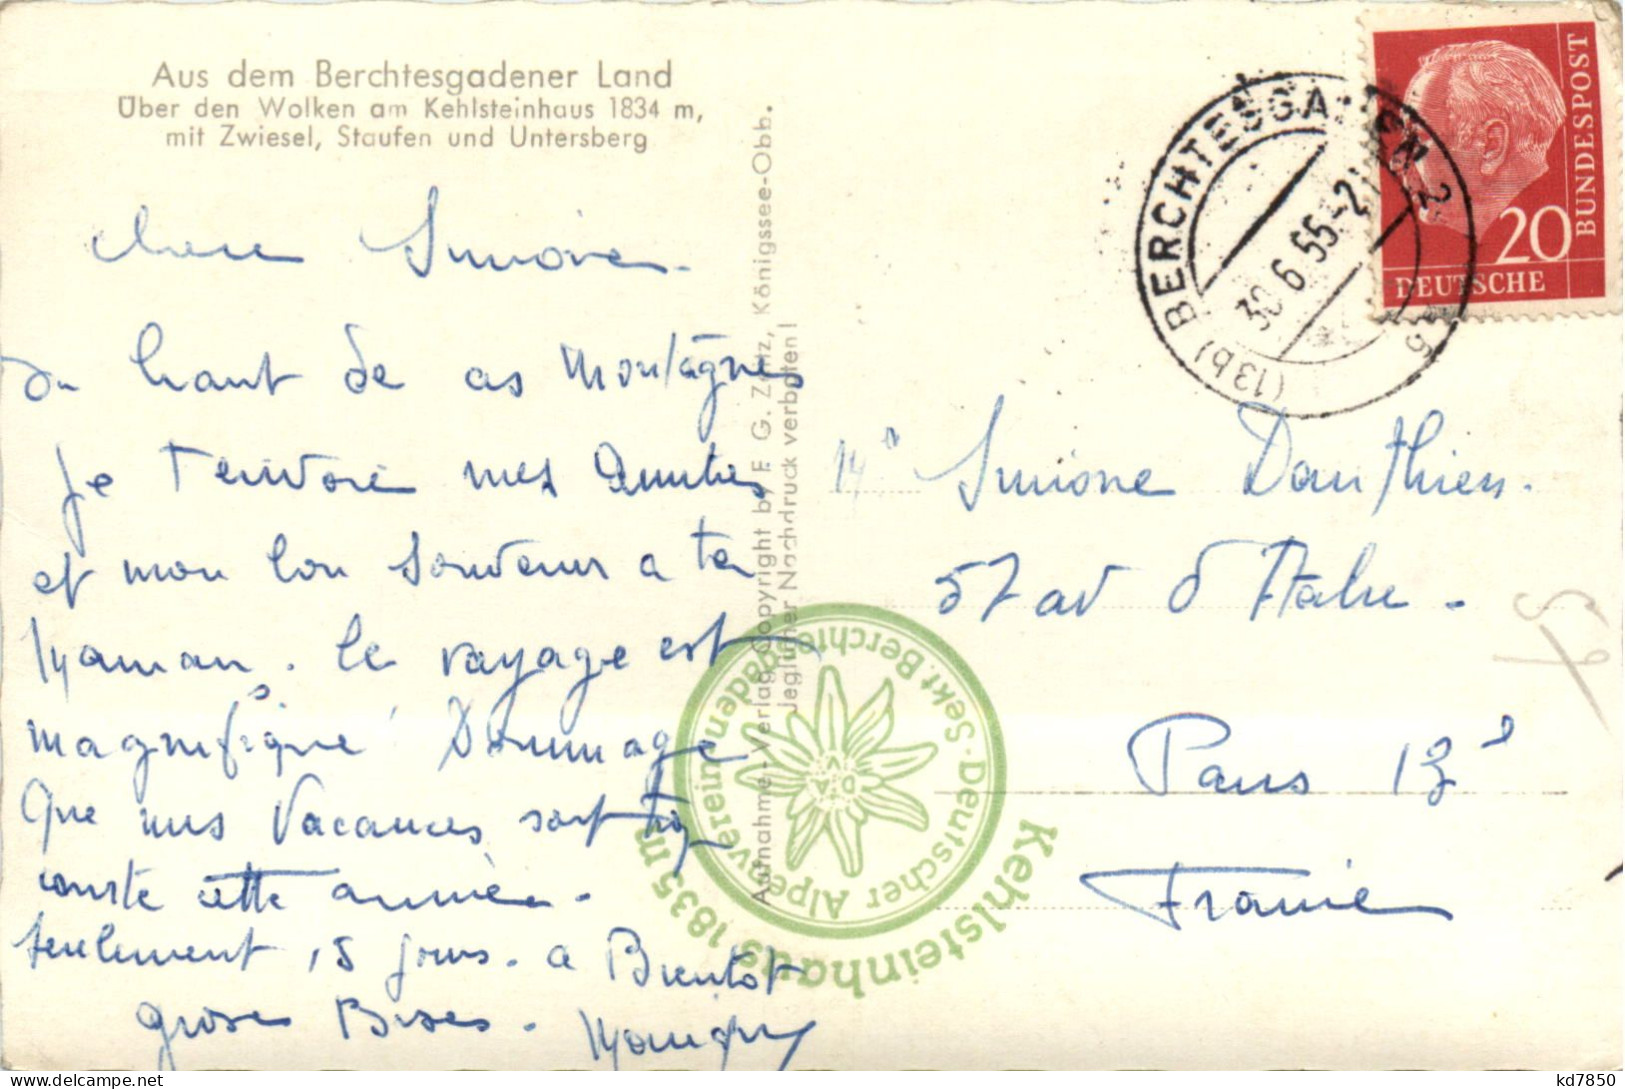 Aus dem Berchtesgadener Land
Über den Wolken am Kehlsteinhaus 1834 m,
mit Zwiesel, Staufen und Untersberg
chere Simone.
du haut de ces Montagnes
je t'envoie mes Amitiés
et mon bon souvenir a ta
Maman. le voyage est
magnifique Dommage
que mes Vacances sont trop
courte cette année.
seulement 15 jours. a Bientot
groses Bises.
Aufnahme-Verlag Copyright by F. G. Zeitz, Königssee-Obb.
Jeglicher Nachdruck verboten!
BERCHTESGADEN 2
30.6.55-21
(13b)
20
DEUTSCHE
BUNDESPOST
Simone Dauthieu.
57 av d'Italie.
Paris 13e
France
Deutscher Alpenverein Sekt. Berchtesgaden
DAV
Kehlsteinhaus 1835 m
57
kd7850